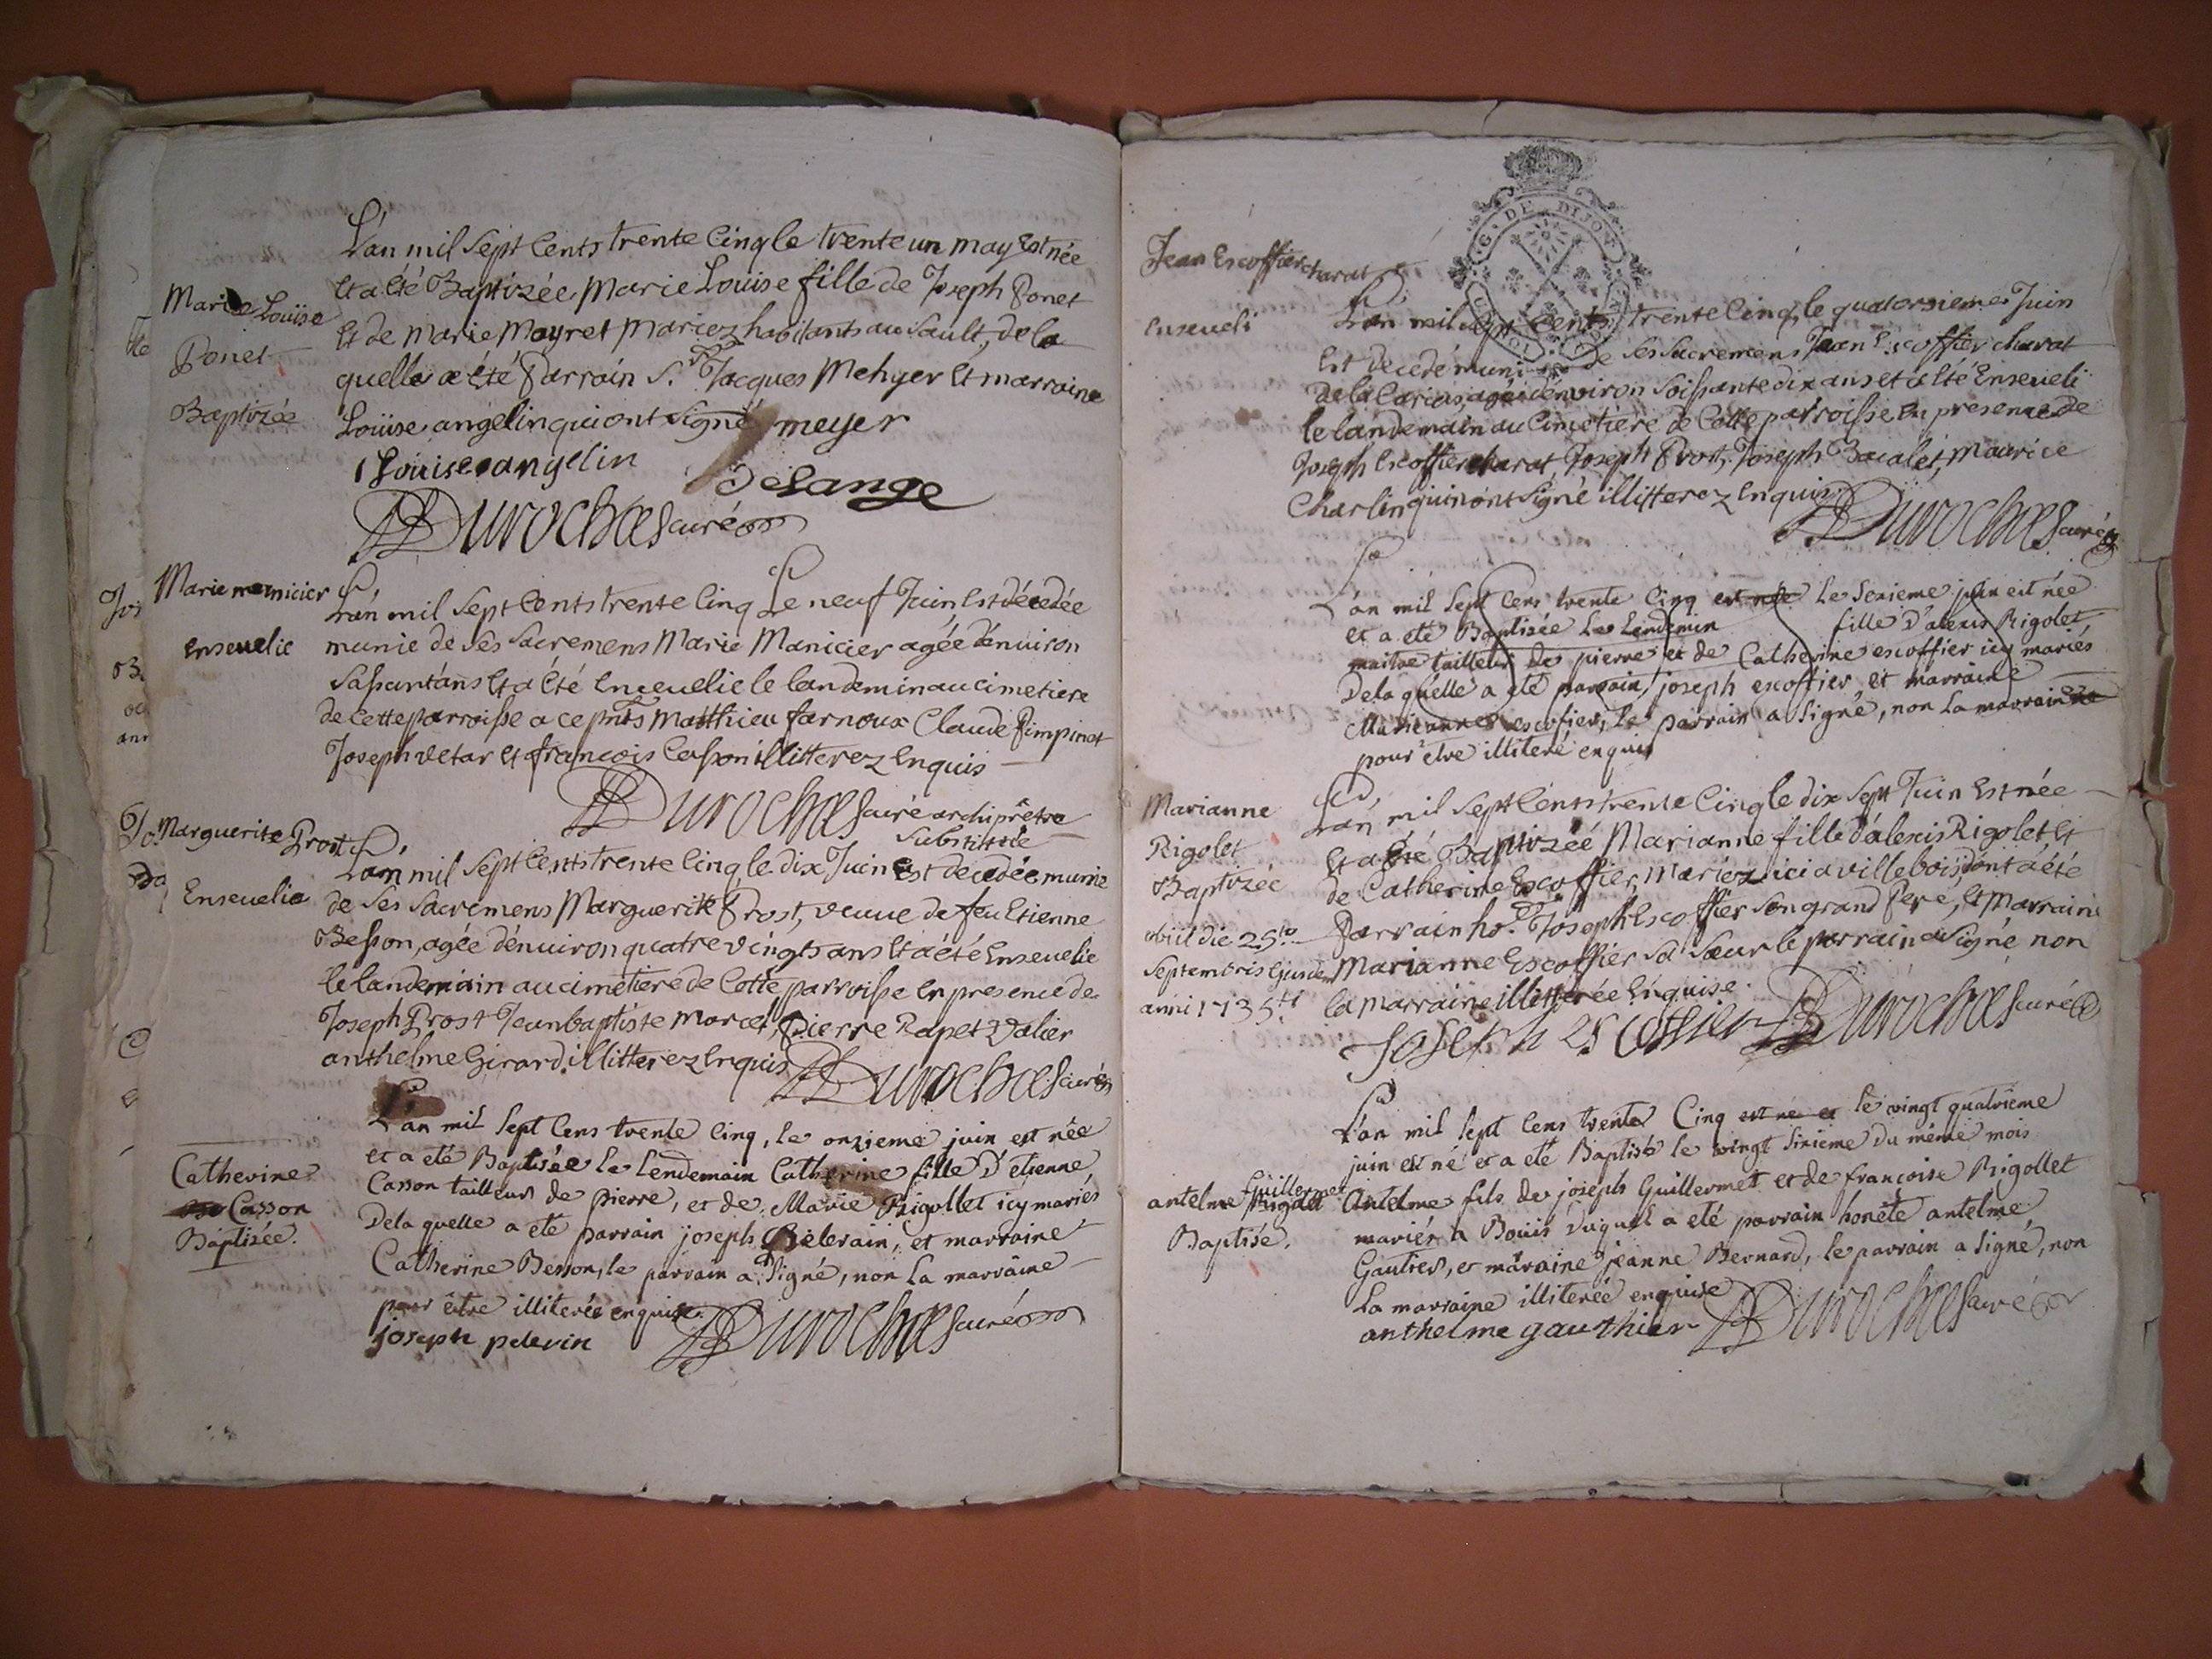 L'an mil Sept Cents trente Cinq le trente un may Est née
Et a été Baptizée Marie Loüise fille de Joseph Ponet
Marie Loüise
Et de Marie Mayret Mariez habitants au Sault, de la
Ponet
quelle a été Parrain S.r Jacques Mehyer Et marraine
Baptizée
Loüise angelin qui ont Signé meyer
Louise angelin
Delange
Duroches curé
Marie manicier
L'an mil Sept Cents trente Cinq Le neuf Juin Est décedée
Enseuelie
munie de Ses Sacremens Marie Manicier agée d'enuiron
Saſsant'ans Et a été Enseuelie le landemin au cimetiere
de Cette parroiſse a ce pnts Matthieu farnoux Claude Pimpinet
Joseph vetar Et francois Caſson illitterez Enquis
Duroches curé archiprêtre
Substitué
Marguerite Prost
L'an mil Sept Cents trente Cinq le dix Juin Est decedée munie
Enseuelie
de Ses Sacremens Marguerite Prost, veuue de feu Etienne
Beſson, agée d'enuiron quatre vingts ans Et a été Enseuelie
le landemain au cimetiere de Cette parroiſse En presence de
Joseph Prost Jeanbaptiste Marcel, Pierre Rapet Valier
anthelme Girard illitterez Enquis
Duroches curé
L'an mil Sept Cens trente Cinq, le onzieme juin est née
et a eté Baptisée le Lendemain Catherine fille D'etienne
Catherine
Casson tailleur de pierre, et de Marie Rigollet icy mariés
Casson
Dela quelle a eté parrain joseph Pelerain, et marraine
Baptisée.
Catherine Besson, le parrain a Signé, non La marraine
pour être illiterée enquise
joseph pelerin
Duroches curé
G. DE DIJON
Jean Escoffier charat
Enseueli
L'an mil Sept Cents trente Cinq le quatorsieme Juin
Est decedé muni de Ses Sacremens Jean Escoffier charat
agé d'enuiron Soiſsante dix ans et a été Enseueli
le landemain au Cimetiere de Cette parroiſse En presence de
Joseph Escoffier charat, Joseph Prost, Joseph Bacalet, Maurice
Charlin qui n'ont Signé illitterez Enquis
Duroches curé
L'an mil Sept Cens trente Cinq est née le Sexieme juin est née
et a eté Baptisée Le Lendemin fille D'alexis Rigolet,
maitre tailleur De pierre et de Catherine escoffier icy mariés
Dela quelle a eté parrain joseph escoffier et marraine
Marieanne escofier, le parrain a Signé, non La marraine
pour être illiteré enquis
Marianne
L'an mil Sept Cents trente Cinq le dix Sept Juin Est née
Rigolet
Et a été Baptizée Marianne fille d'alexis Rigolet Et
Baptizée
de Catherine Escoffier, Mariéz ici a villebois, dont a été
obiit die 25ta
Parrain ho.e Joseph Escoffier Son grand Pere, Et Marraine
Septembris Ejusdem
Marianne Escoffier Sa Sœur le parrain a Signé non
anni 1735ti
la marraine illitterée Enquise.
Joseph escoffier Duroches curé
L'an mil Sept Cens trente Cinq est né et le vingt quatrieme
juin est né et a eté Baptisé le vingt Sixieme du même mois
Guillermet
antelme Rigollet
Antelme fils de joseph Guillermet et de francoise Rigollet
Baptisé.
mariés a Bouis duquel a eté parrain honête antelme
Gautier, et maraine jeanne Bernard, le parrain a Signé, non
La marraine illiterée enquise
anthelme gauthier Duroches curé